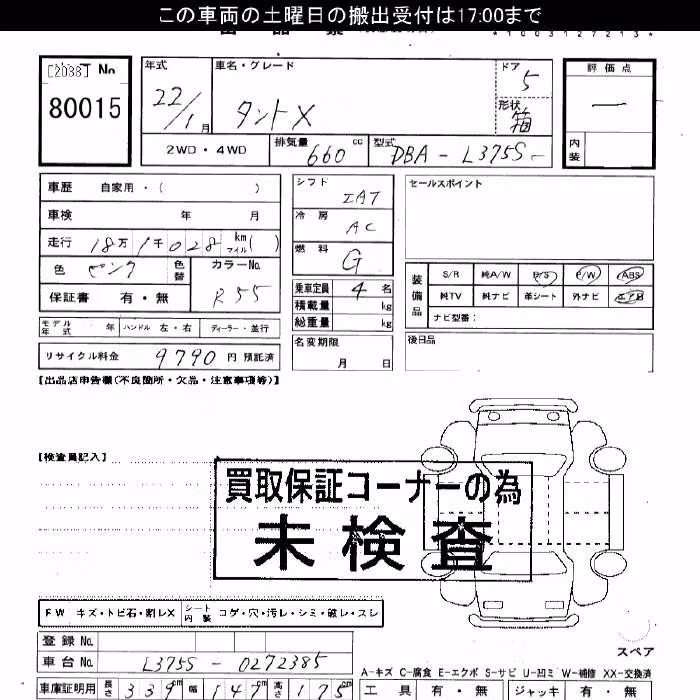 この車両の土曜日の搬出受付は17:00まで
*1003127213*
[2038] No
80015
年式 22/1月
車名・グレード タントX
ドア 5
形状 箱
評価点 —
内装
2WD・4WD
排気量 660 cc
型式 DBA - L375S -
車歴 自家用・( )
車検 年 月
走行 18万1千028 km マイル( )
色 ピンク 色替
カラーNo. R55
保証書 有・無
シフト IAT
冷房 AC
燃料 G
乗車定員 4名
積載量 kg
総重量 kg
名変期限 月 日
セールスポイント
装備品 S/R 純A/W P/S P/W ABS
純TV 純ナビ 革シート 外ナビ エアB
ナビ型番:
後日品
モデル年式 年 ハンドル 左・右 ディーラー・並行
リサイクル料金 9790 円 預託済
【出品店申告欄(不良箇所・欠品・注意事項等)】
【検査員記入】
買取保証コーナーの為
未検査
FW キズ・トビ石・割レX シート内装 コゲ・穴・汚レ・シミ・破レ・スレ
登録No.
車台No. L375S - 0272385
車庫証明用 長さ 339cm 幅 147cm 高さ 175cm
スペア
A-キズ C-腐食 E-エクボ S-サビ U-凹ミ W-補修 XX-交換済
工具 有・無 ジャッキ 有・無